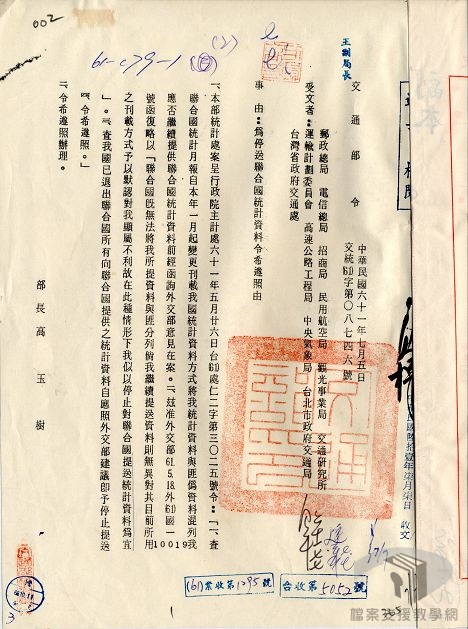 002
61-c79-1
(2)
王副局長
交通部 令
中華民國六十一年七月五日
交統(61)字第〇八七四六號
受文者：
郵政總局 電信總局 招商局 民用航空局 觀光事業局 交通研究所
運輸計劃委員會 高速公路工程局 中央氣象局 台北市政府交通處
台灣省政府交通處
事由：爲停送聯合國統計資料令希遵照由
一、本部統計處案呈行政院主計處六十一年五月廿六日台(61)處仁二字第三〇二五號令：「一、查
聯合國統計月報自本年一月起變更刊載我國統計資料方式將我國統計資料與匪僞資料混列我
應否繼續提供聯合國統計資料前經函詢外交部意見在案。二、玆准外交部61.5.18.外(61)國一10019
號函復略以「聯合國旣無法將我所提資料與匪分列倘我繼續提送資料則無異對其目前所用
之刊載方式予以默認對我顯屬不利故在此種情形下我似以停止對聯合國提送統計資料爲宜
」。三、查我國已退出聯合國所有向聯合國提供之統計資料自應照外交部建議卽予停止提送
。四、令希遵照。」
二、令希遵照辦理。
部長 高玉樹
(61)業收第1295號
台收第5052號
收文
1
3
檔案支援教學網